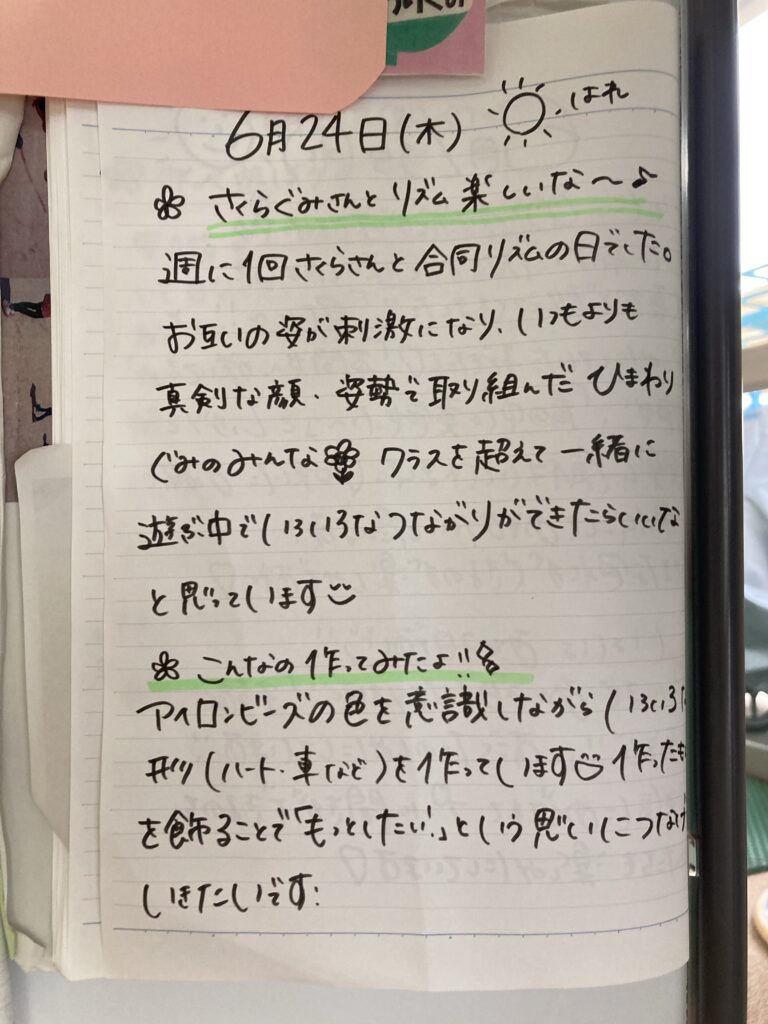 6月24日(木) はれ
さくらぐみさんと リズム 楽しいな〜♪
週に1回さくらさんと合同リズムの日でした。
お互いの姿が刺激になり、いつもよりも
真剣な顔・姿勢で取り組んだ ひまわり
ぐみのみんな クラスを超えて一緒に
遊ぶ中でいろいろなつながりができたらいいな
と思っています
こんなの作ってみたよ!!
アイロンビーズの色を意識しながらいろいろな
形(ハート・車など)を作っています 作ったも
を飾ることで「もっとしたい!」という思いにつなげ
いきたいです!